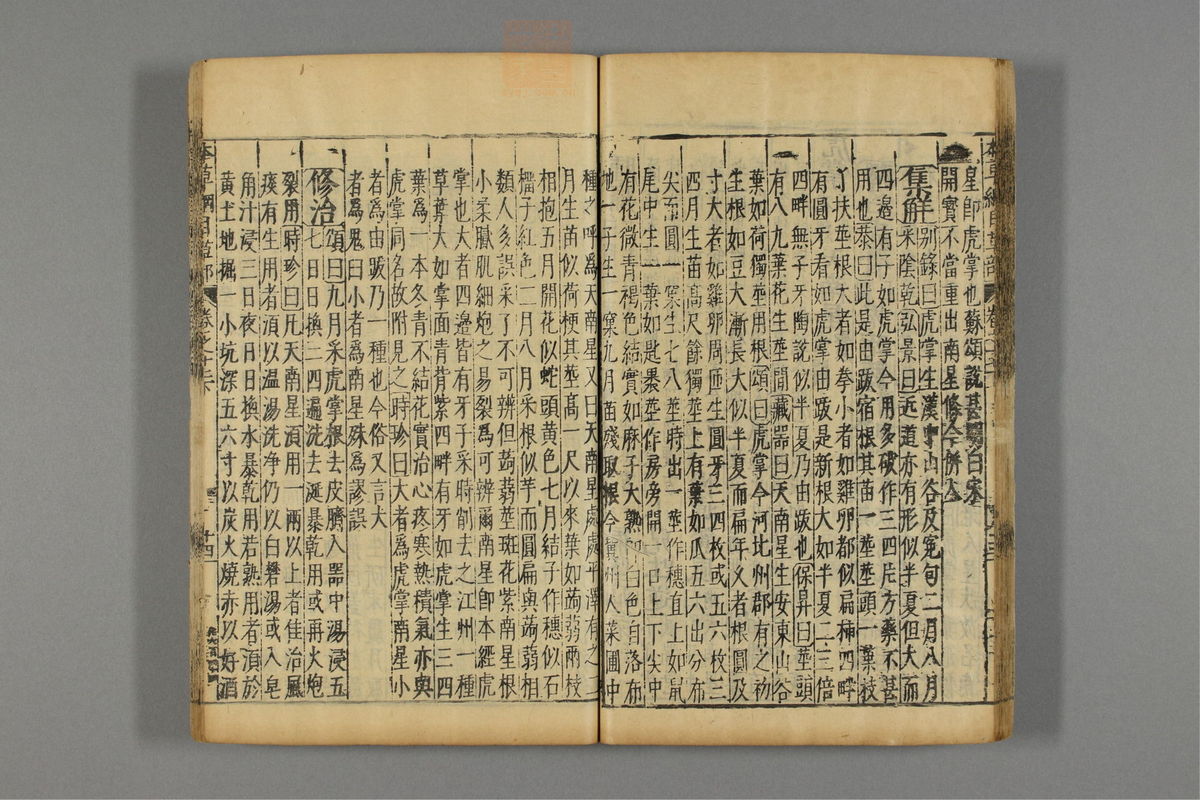 星即虎掌也蘇頌說甚明白宋
開寶不當重出南星條今併入
集解別錄曰虎掌生漢中山谷及冤句二月八月
采陰乾弘景曰近道亦有形似半夏但大而
四邊有子如虎掌今用多破作三四片方藥不甚
用也恭曰此是由跋宿根其苗一莖莖頭一葉枝
丫扶莖根大者如拳小者如雞卵都似扁柿四畔
有圓牙看如虎掌由跋是新根大如半夏二三倍
四畔無子牙陶說似半夏乃由跋也保昇曰莖頭
有八九葉花生莖間藏器曰天南星生安東山谷
葉如荷獨莖用根頌曰虎掌今河北州郡有之初
生根如豆大漸長大似半夏而扁年久者根圓及
寸大者如雞卵周匝生圓牙三四枚或五六枚三
四月生苗高尺餘獨莖上有葉如爪五六出分布
尖而圓一窠生七八莖時出一莖作穗直上如鼠
尾中生一葉如匙裹莖作房旁開一口上下尖中
有花微青褐色結實如麻子大熟即白色自落布
地一子生一窠九月苗殘取根今冀州人菜圃中
種之呼爲天南星又曰天南星處處平澤有之二
月生苗似荷梗其莖高一尺以來葉如蒟蒻兩枝
相抱五月開花似蛇頭黃色七月結子作穗似石
榴子紅色二月八月采根似芋而圓扁與蒟蒻相
類人多誤采了不可辨但蒟蒻莖斑花紫南星根
小柔膩肌細炮之易裂爲可辨爾南星即本經虎
掌也大者四邊皆有牙子采時削去之江州一種
草蔓大如掌面青背紫四畔有牙如虎掌生三四
葉爲一本冬青不結花實治心疼寒熱積氣亦與
虎掌同名故附見之時珍曰大者爲虎掌南星小
者爲由跋乃一種也今俗又言大
者爲鬼曰小者爲南星殊爲謬誤
修治頌曰九月采虎掌根去皮臍入器中湯浸五
七日日換三四遍洗去涎暴乾用或再火炮
裂用時珍曰凡天南星須用一兩以上者佳治風
痰有生用者須以溫湯洗淨仍以白礬湯或入皂
角汁浸三日夜日日換水暴乾用若熟用者須於
黃土地掘一小坑深五六寸以炭火燒赤以好酒
本草綱目草部
十四